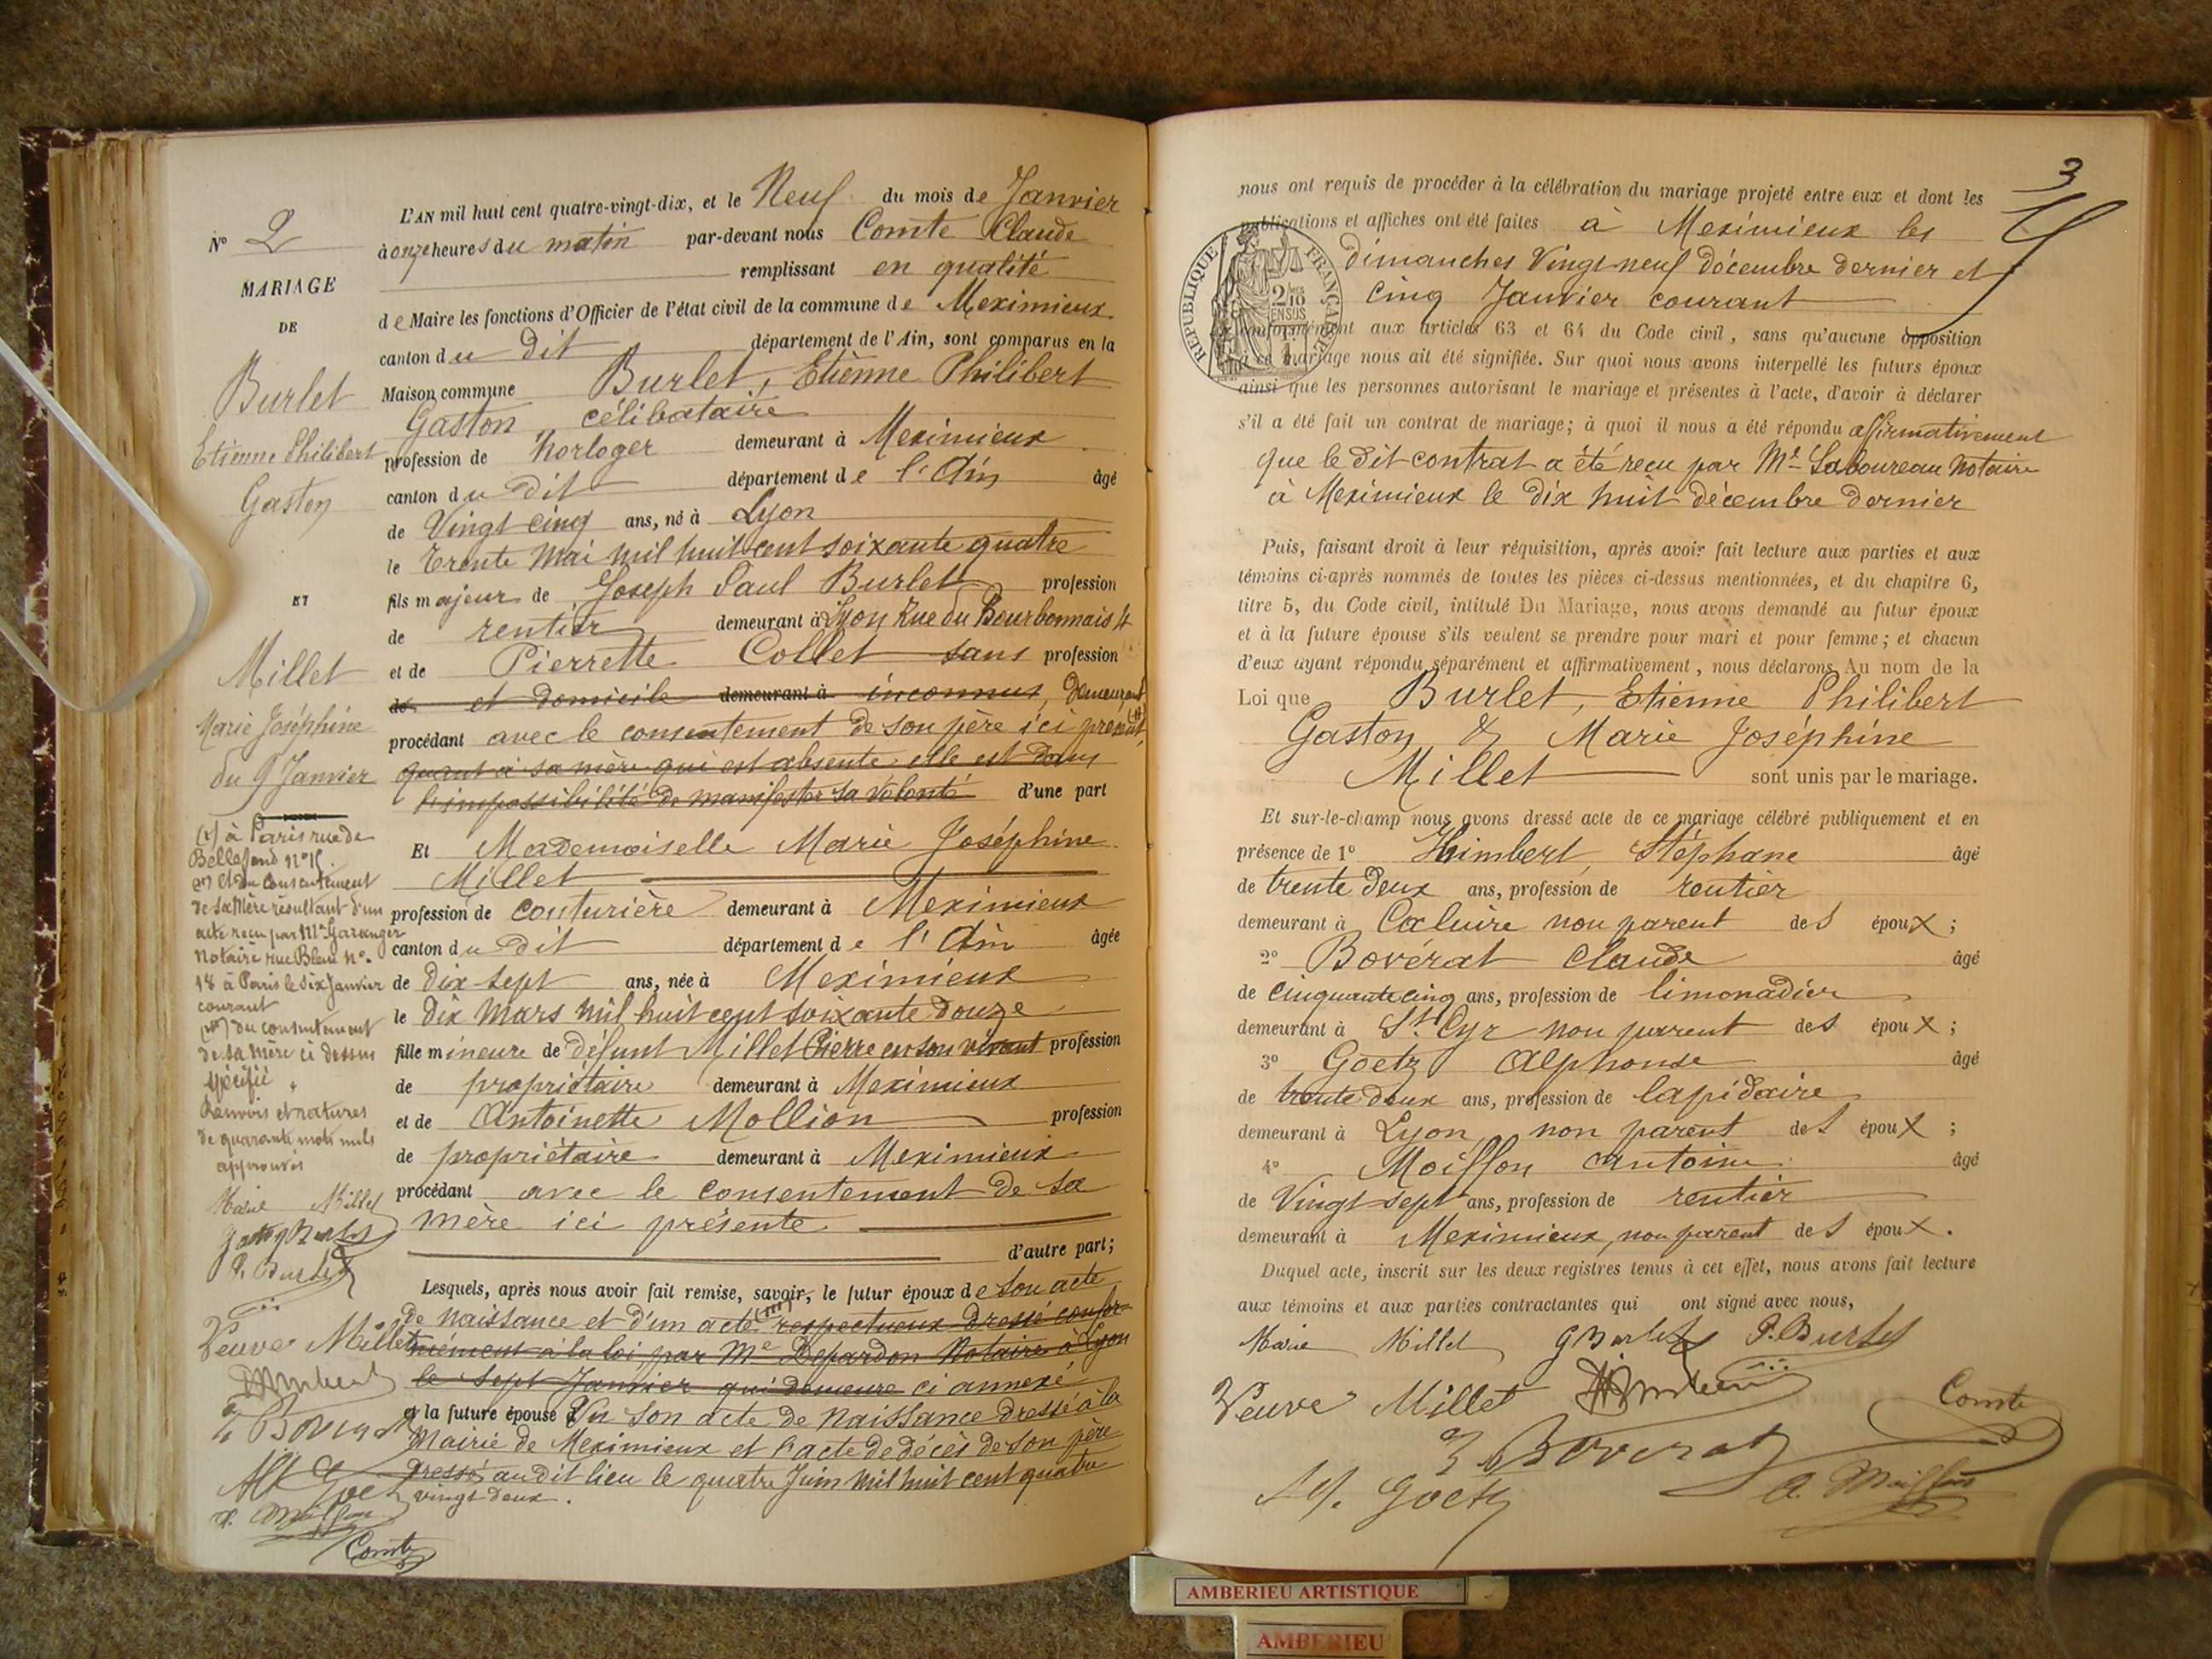 L'AN mil huit cent quatre-vingt-dix, et le Neuf du mois de Janvier
à onze heures du matin par-devant nous Comte Claude
remplissant en qualité
de Maire les fonctions d'Officier de l'état civil de la commune de Meximieux
canton du dit département de l'Ain, sont comparus en la
Maison commune Burlet, Etienne Philibert
Gaston célibataire
profession de horloger demeurant à Meximieux
canton du dit département de l'Ain âgé
de Vingt cinq ans, né à Lyon
le trente Mai mil huit cent soixante quatre
fils majeur de Joseph Paul Burlet profession
de rentier demeurant à Lyon Rue du Bourbonnais 4
et de Pierrette Collet sans profession
de et domicile demeurant à inconnus, demeurant
procédant avec le consentement de son père ici présent
quant à sa mère qui est absente elle est dans
l'impossibilité de manifester sa volonté d'une part
Et Mademoiselle Marie Joséphine
Millet
profession de couturière demeurant à Meximieux
canton du dit département de l'Ain âgée
de dix sept ans, née à Meximieux
le dix Mars mil huit cent soixante douze
fille mineure de défunt Millet Pierre en son vivant profession
de propriétaire demeurant à Meximieux
et de Antoinette Mollion profession
de propriétaire demeurant à Meximieux
procédant avec le consentement de sa
mère ici présente
d'autre part;
Lesquels, après nous avoir fait remise, savoir, le futur époux de son acte
de naissance et d'un acte respectueux dressé confor-
mément à la loi par Me Depardon Notaire à Lyon
le sept Janvier qui demeure ci annexé
et la future épouse Vu son acte de naissance dressé à la
Mairie de Meximieux et l'acte de décès de son père
dressé au dit lieu le quatre Juin mil huit cent quatre
vingt deux.
N° 2
MARIAGE
DE
Burlet
Etienne Philibert
Gaston
ET
Millet
Marie Joséphine
du 9 Janvier
à Paris rue de
Bellefond n°
et du consentement
de sa Mère résultant d'un
acte reçu par Me Garanger
Notaire rue Bleue n°
18 à Paris le six Janvier
courant
du consentement
de sa mère ci dessus
spécifié
Renvois et ratures
de quarante mots nuls
approuvés
Marie Millet
P. Burlet
Veuve Millet
Comte
3
nous ont requis de procéder à la célébration du mariage projeté entre eux et dont les
publications et affiches ont été faites à Meximieux les
dimanches Vingt neuf décembre dernier et
cinq Janvier courant
REPUBLIQUE FRANÇAISE
conformément aux articles 63 et 64 du Code civil, sans qu'aucune opposition
à ce mariage nous ait été signifiée. Sur quoi nous avons interpellé les futurs époux
ainsi que les personnes autorisant le mariage et présentes à l'acte, d'avoir à déclarer
s'il a été fait un contrat de mariage; à quoi il nous a été répondu affirmativement
que le dit contrat a été reçu par Me Laboureau Notaire
à Meximieux le dix huit décembre dernier
Puis, faisant droit à leur réquisition, après avoir fait lecture aux parties et aux
témoins ci-après nommés de toutes les pièces ci-dessus mentionnées, et du chapitre 6,
titre 5, du Code civil, intitulé Du Mariage, nous avons demandé au futur époux
et à la future épouse s'ils veulent se prendre pour mari et pour femme; et chacun
d'eux ayant répondu séparément et affirmativement, nous déclarons Au nom de la
Loi que Burlet, Etienne Philibert
Gaston & Marie Joséphine
Millet sont unis par le mariage.
Et sur-le-champ nous avons dressé acte de ce mariage célébré publiquement et en
présence de 1° Himbert Stéphane âgé
de trente deux ans, profession de rentier
demeurant à Caluire non parent des époux;
2° Bovérat Claude âgé
de cinquante cinq ans, profession de limonadier
demeurant à St Cyr non parent des époux;
3° Goetz Alphonse âgé
de trente deux ans, profession de lapidaire
demeurant à Lyon, non parent des époux;
4° Moiffon Antoine âgé
de Vingt sept ans, profession de rentier
demeurant à Meximieux, non parent des époux.
Duquel acte, inscrit sur les deux registres tenus à cet effet, nous avons fait lecture
aux témoins et aux parties contractantes qui ont signé avec nous,
Marie Millet G Burlet P. Burlet
Veuve Millet Comte
Boverat
Goetz
AMBERIEU ARTISTIQUE
AMBERIEU